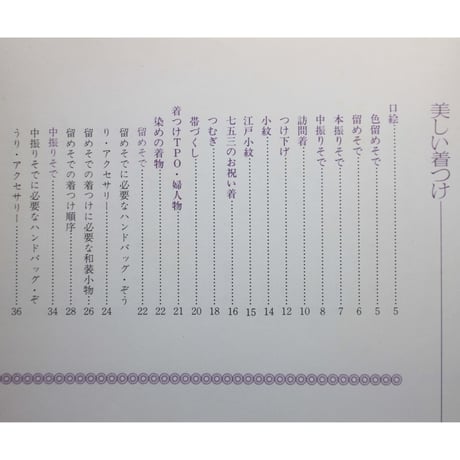 美しい着つけ
口絵 5
色留めそで 5
留めそで 6
本振りそで 7
中振りそで 8
訪問着 10
つけ下げ 12
小紋 14
江戸小紋 15
七五三のお祝い着 16
つむぎ 18
帯づくし 20
着つけTPO・婦人物 21
染めの着物 22
留めそで 22
留めそでに必要なハンドバッグ・ぞう
り・アクセサリー 24
留めそでの着つけに必要な和装小物 26
留めそでの着つけ順序 28
中振りそで 34
中振りそでに必要なハンドバッグ・ぞ
うり・アクセサリー 36